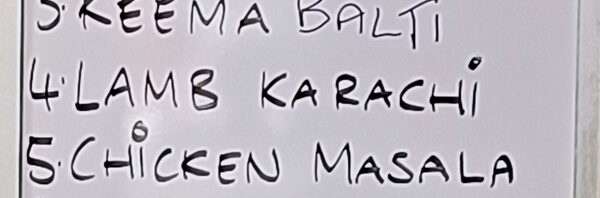 3. KEEMA BALTI
4. LAMB KARACHI
5. CHICKEN MASALA